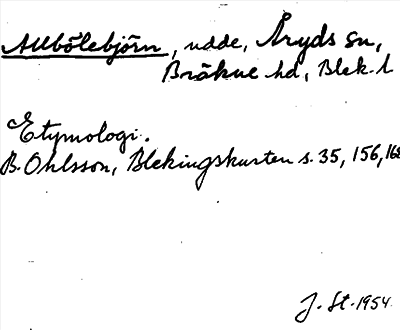 Allbölebjörn, udde, Åryds sn,
Bräkne hd, Blek. l
Etymologi.
B. Ohlsson, Blekingskusten s. 35, 156, 168
J. St. 1954